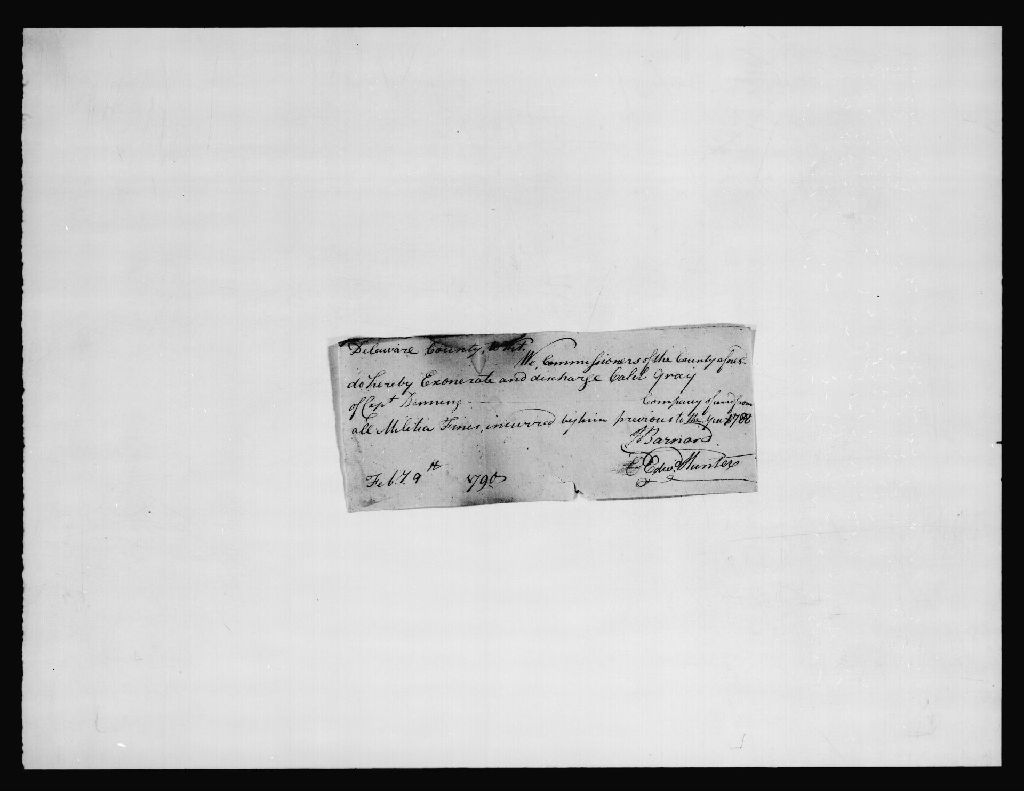 Delaware County, to wit.
We Commissioners of the County afores.
do hereby Exonerate and discharge Caleb Gray
of Capt Company of and from
all Militia Fines, incurred by him previous to the year 1788
Barnard
Edw. Hunter
Feby 9th 1790